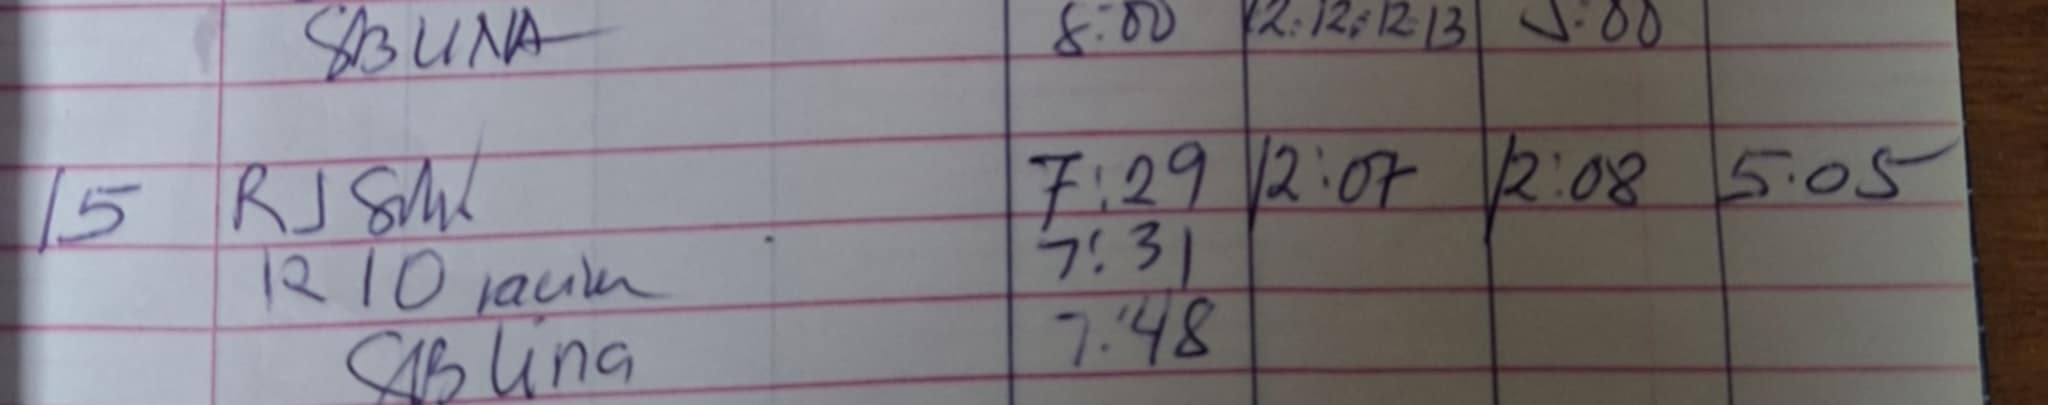 SABUNA 8:00 12:12 12:13 5:00
15 RJ 7:29 12:07 12:08 5:05
7:31
SABUna 7:48